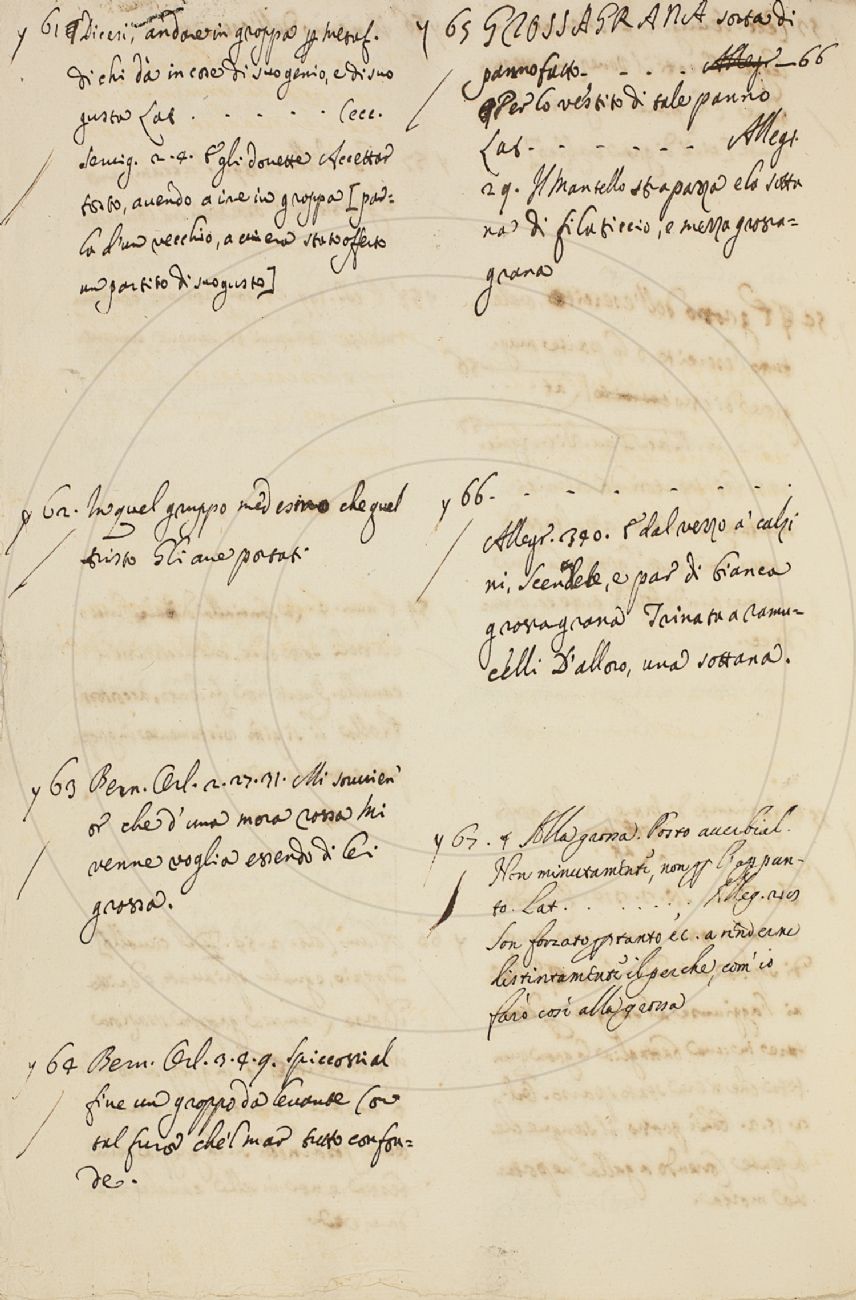 y 61 ¶ Dicesi, andare in groppa p metaf.
di chi dà in cose di suo genio, e di suo
gusto Lat . . . . . . Cecc.
Servig. 2. 4. E gli dovette Accettar
tosto, avendo a ire in groppa [par=
la d'un vecchio, a cui era stato offerto
un partito di suo gusto]
y 62. In quel gruppo medesimo che quel
tristo Gli ave portati.
y 63 Bern. Orl. 2. 27. 31. Mi souvien
or che d'una mora rossa Mi
venne voglia essendo di lei
grossa.
y 64 Bern. Orl. 3. 4. 9. Spiccossi al
fine un groppo da levante Con
tal furor che'l mar tutto confon=
de.
y 65 GROSSAGRANA sorta di
panno fatto - - - - Allegr - 66
¶ Per lo vestito di tale panno
Lat - - - - - - Allegr.
29. Il mantello strapazza e la sotta
na di filaticcio, e mezza grossa=
grana
y 66 - - - - - - - - .
Allegr. 340. E dal vezzo a' calzi
ni, scendete, e par di bianca
grossagrana Trinata a ramu=
celli D'alloro, una sottana.
y 67. ¶ Alla grossa. Posto averbial.
Non minutamente, non p l'appun-
to. Lat. . . . . . . . Alleg.
Son forzato p tanto, ec. a renderne
distintamente il perche, com' io
farò così alla grossa